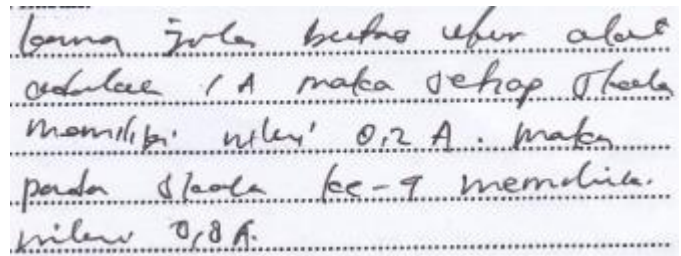 karna jula batas ukur alat
adalae 1 A maka setiap skala
memiliki nilai 0,2 A. maka
pada skala ke-4 memiliki
nilai 0,8 A.